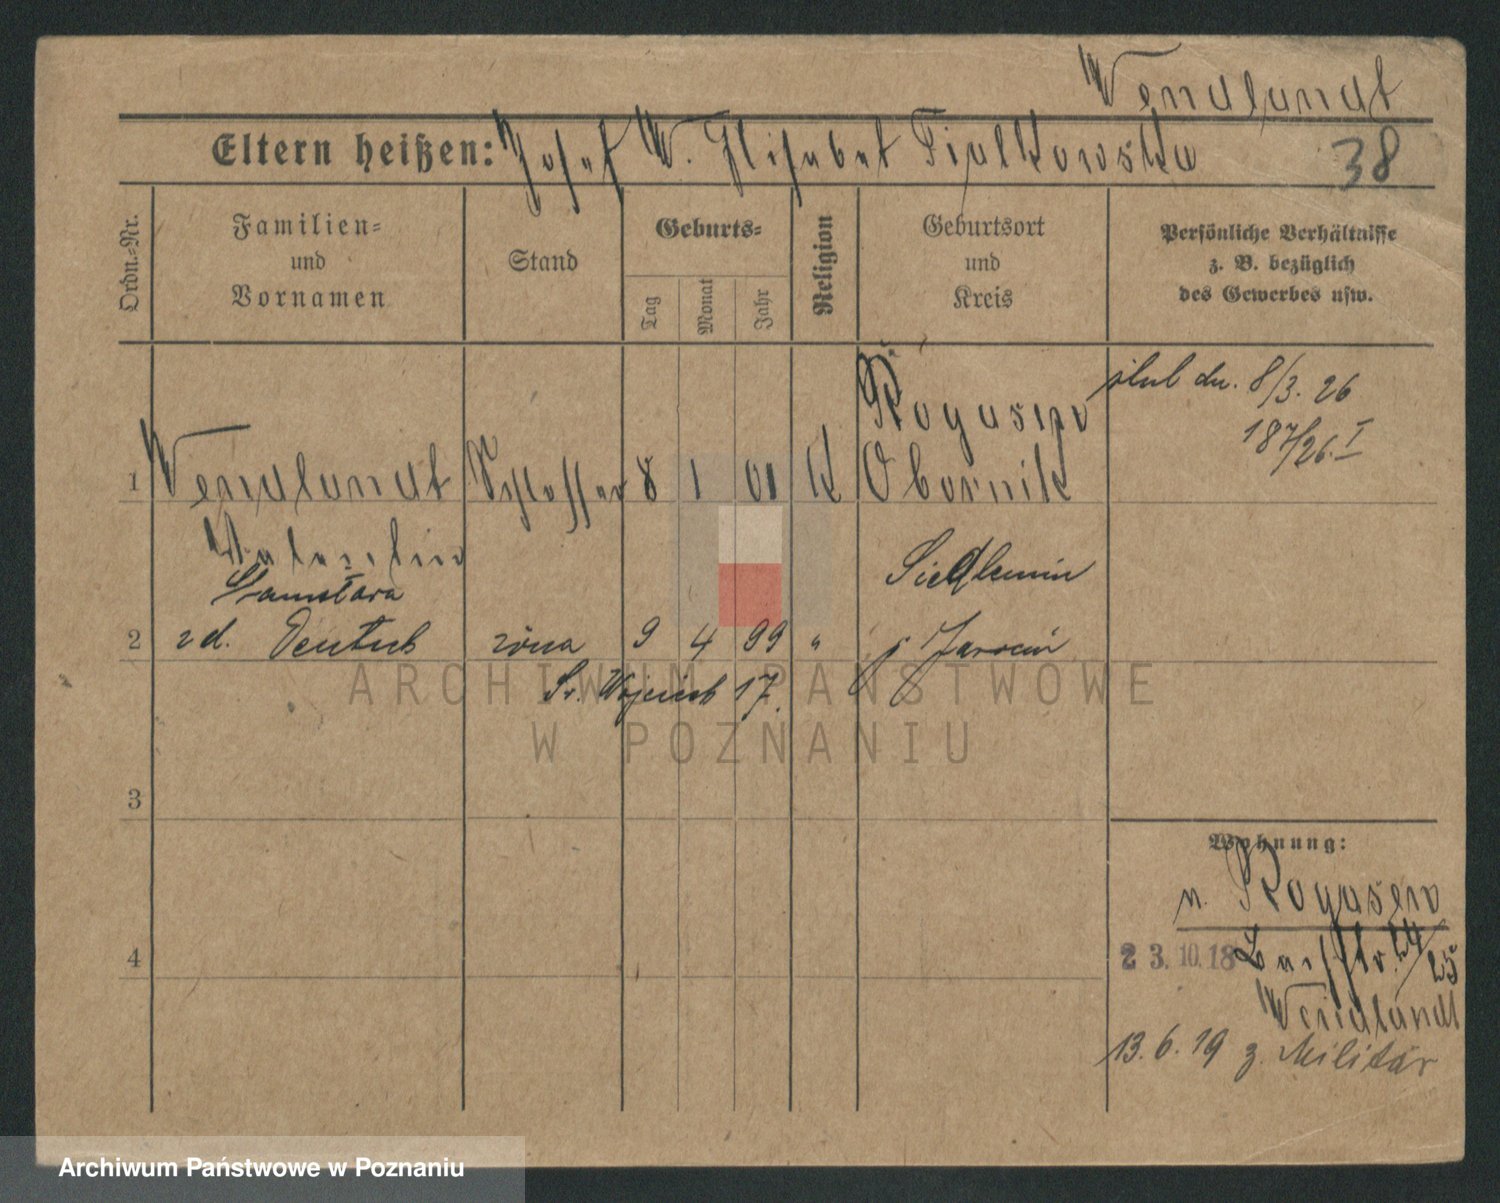 Wendlandt
Eltern heißen: Josef W. Elisabet Fialkowska
38
Ordn.-Nr.
Familien-
und
Vornamen
Stand
Geburts-
Tag
Monat
Jahr
Religion
Geburtsort
und
Kreis
Persönliche Verhältnisse
z. B. bezüglich
des Gewerbes usw.
ślub dn. 8/3. 26
187/26. I
Rogasen
1 Wendlandt Schlosser 8 1 01 K Obornik
Valentin
Siedlemin
2 zd. Deutsch żona 9 4 99 " p Jarocin
Św. Wojciech 17.
3
4
Wohnung:
n. Rogasen
23.10.18 24/25
Wendlandt
13.6.19 z. Militär
ARCHIWUM PAŃSTWOWE
W POZNANIU
Archiwum Państwowe w Poznaniu